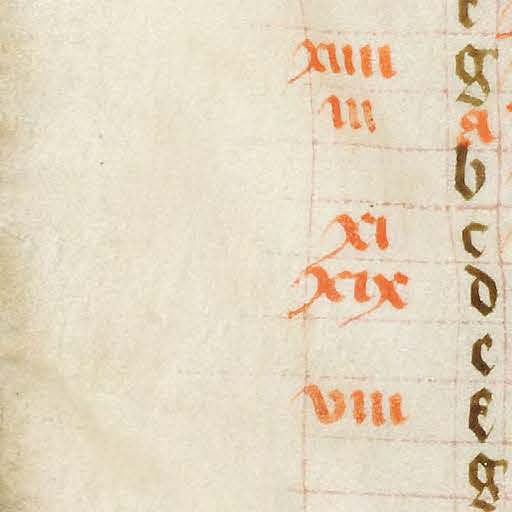 xiiii g
iii a
b
xi c
xix d
e
viii f
g